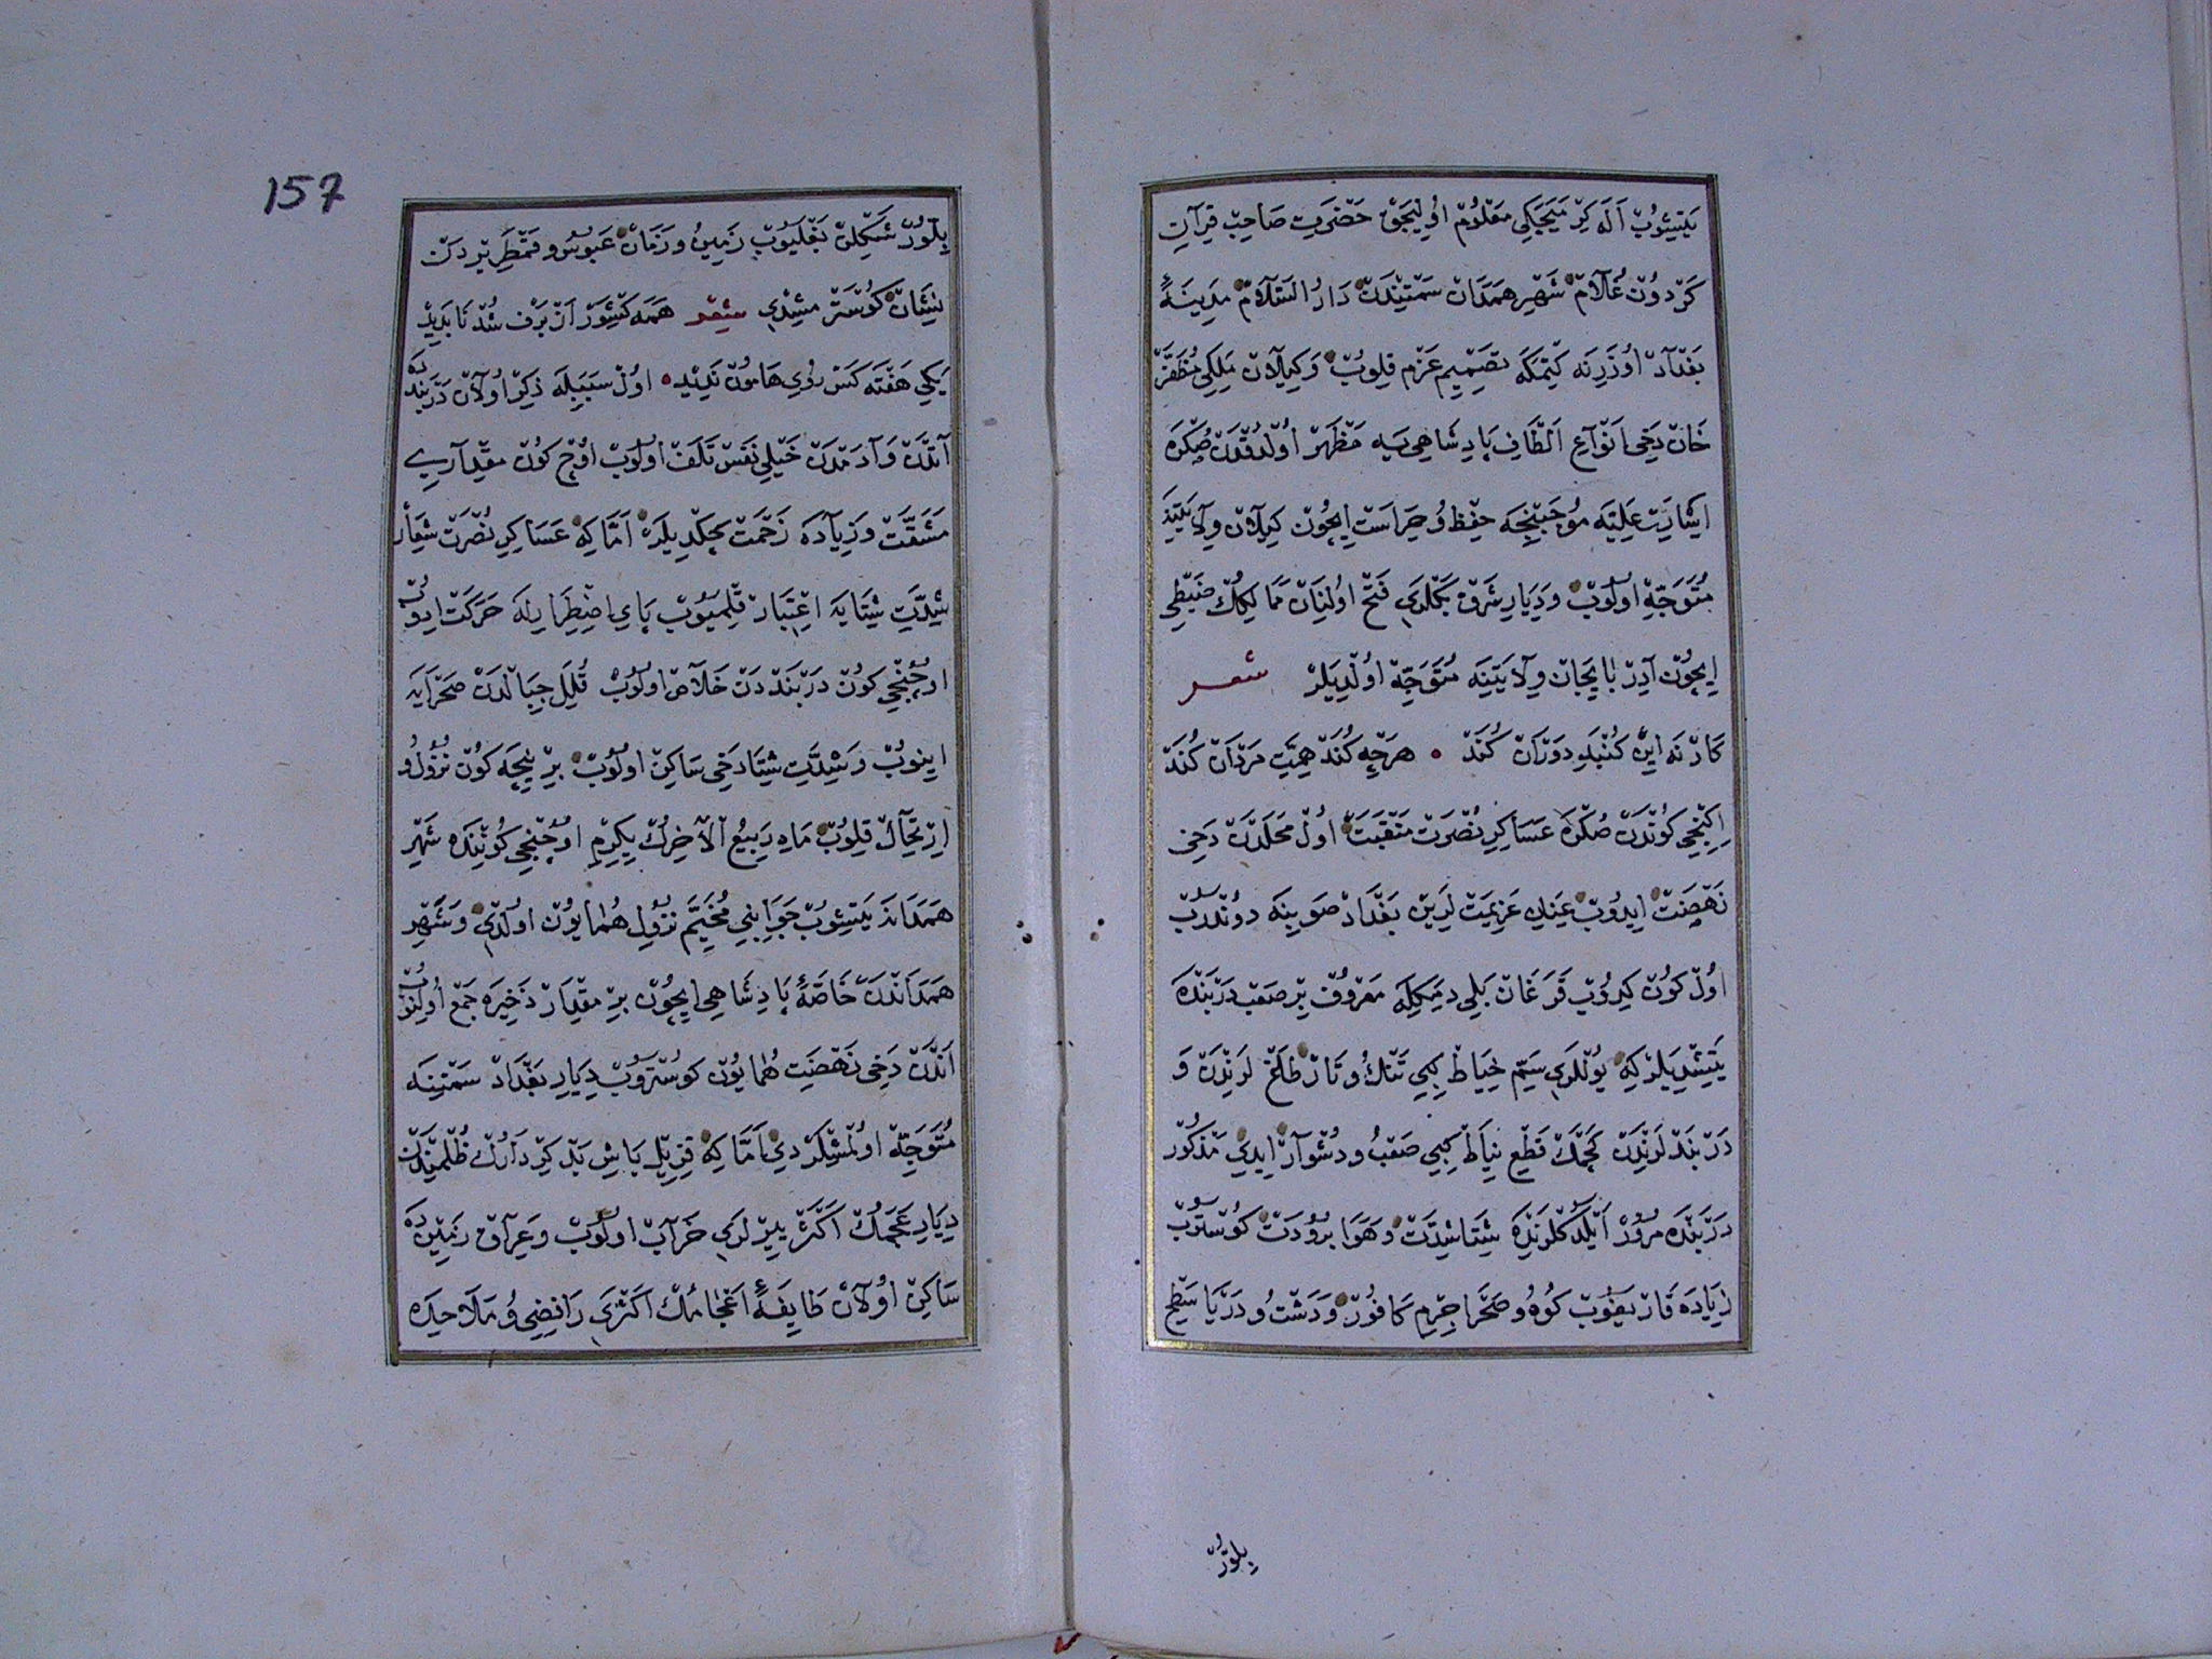 يَتِيشُوبْ اَلَه كِرْمَيَجَكِي مَعْلُومْ اُولِيجَقْ حَضْرَتِ صَاحِبْ قِرَآنِ
كَرْدُونْ غُلَامْ شَهْرِ هَمَدَانْ سَمْتِنْدَنْ دَارُ السَّلَامْ مَدِينَۀ
بَغْدَادْ اُوزَرِنَه كِتْمَكَه تَصْمِيمِ عَزْم قِلُوبْ وَكِيلَانْ مَلِكِي مُظَفَّرْ
خَانْ دَخِي اَنْوَاعِ اَلْطَافِ پَادِشَاهِي يَه مَظْهَرْ اُولْدُقْدَنْ صُكْرَه
اِشَارَتِ عَلِيَّه مُوجَبِنْجَه حِفْظ وُ حِرَاسَتْ اِيچُونْ كِيلَانْ وِلَايَتِنَه
مُتَوَجِّه اُولُوبْ وَدِيَارِ شَرْقْ بَكْلَرِي فَتْحْ اُولِنَانْ مَمَالِكُكْ ضَبْطِي
اِيچُونْ آذِرْبَايِجَانْ وِلَايَتِنَه مُتَوَجِّه اُولْدِيلَرْ شعر
كَارْ نَه اِينْ كُنْبَدِ دَوْرَانْ كُنَدْ • هَرْچِه كُنَدْ هِمَّتِ مَرْدَانْ كُنَدْ
اِكِنْجِي كُونْدَنْ صُكْرَه عَسَاكِرِ نُصْرَتْ مَنْقَبَتْ اُولْ مَحَلْدَنْ دَخِي
نَهْضَتْ اِيدُوبْ عِنَانِ عَزِيمَتْ لَرِينْ بَغْدَادْ صَوبِنَه دُونْدُرُبْ
اُولْ كُونْ كِيرُوبْ قَرَغَانْ بَلِي دِمَكِلَه مَعْرُوفْ بِرْ صَعْبْ دَرْبَنْدَه
يَتِشْدِيلَرْ كِه يُولْلَرِي سَمِّ خِيَاطْ كِبِي تَنْكْ وُ تَارْ طَلَعْ لَرِنْدَنْ وَ
دَرْبَنْدْلَرِنْدَنْ كَچْمَكْ قَطْعِ نِيَاطْ كِبِي صَعْبْ وُ دُشْوَارْ اِيدِي مَذْكُورْ
دَرْبَنْدَه مُرُورْ اَيْلَدُكْلَرِنْدَه شِتَا شِدَّتْ وَهَوَا بُرُودَتْ كُوسْتَرُوبْ
زِيَادَه قَارْ يَغُوبْ كُوهْ وُ صَحْرَا جِرْمِ كَافُورْ وَدَشْتْ وُ دَرْيَا سَطْحِ
بِلَّورْ
بِلَّورْ شَكْلِنْ بَغْلَيُوبْ زَمِينْ وَزَمَانْ عَبُوسْ وُ قَمْطَرِيرْدَنْ
نِشَانْ كُوسْتَرْمِشِدِي شِعْر هَمَه كِشْوَرْ اَزْ بَرْفْ شُدْ نَابَدِيدْ
يَكِي هَفْتَه كَسْ رُويِ هَامُونْ نَدِيدْ • اُولْ سَبَبِلَه ذِكْرْ اُولَانْ دَرْبَنْدْدَه
آتْدَنْ وَآدَمْدَنْ خَيْلِي نَفَسْ تَلَفْ اُولُوبْ اُوچْ كُونْ مِقْدَارِي
مَشَقَّتْ وَزِيَادَه زَحْمَتْ چَكْدِيلَرْ اَمَّا كِه عَسَاكِرِ نُصْرَتْ شِعَارْ
شِدَّتِ شِتَايَه اِعْتِبَارْ قِلْمَيُوبْ پَايِ اِضْطِرَارِلَه حَرَكَتْ اِيدُوبْ
اُوچُنْجِي كُونْ دَرْبَنْدْدَنْ خَلَاصْ اُولُوبْ قُلَلِ جِبَالْدَنْ صَحْرَايَه
اِينُوبْ وَشِدَّتِ شِتَا دَخِي سَاكِنْ اُولُوبْ بِرْ نِيجَه كُونْ نُزُولْ وُ
اِرْتِحَالْ قِلُوبْ مَاهِ رَبِيعُ الْآخِرُكْ يِكِرْمِ اُوچُنْجِي كُونِنْدَه شَهْرِ
هَمَدَانَه يَتِيشُوبْ جَوَانِبِي مُخَيَّمِ نُزُولِ هُمَايُونْ اُولْدِي وَشَهْرِ
هَمَدَانْدَنْ خَاصَّۀ پَادِشَاهِي اِيچُونْ بِرْ مِقْدَارْ ذَخِيرَه جَمْعْ اُولِنُوبْ
اَنْدَنْ دَخِي نَهْضَتِ هُمَايُونْ كُوسْتَرُوبْ دِيَارِ بَغْدَادْ سَمْتِنَه
مُتَوَجِّه اُولْمُشْلَرْدِي اَمَّا كِه قِزِيلْ بَاشِ بَدْ كِرْدَارُكْ ظُلْمِنْدَنْ
دِيَارِ عَجَمُكْ اَكْثَرْ يِيرْلَرِي خَرَابْ اُولُوبْ وَعِرَاقْ زَمِينْدَه
سَاكِنْ اُولَانْ طَايِفَۀ اَعْجَامُكْ اَكْثَرِي رَافِضِي وُ مَلَاحِدَه
157